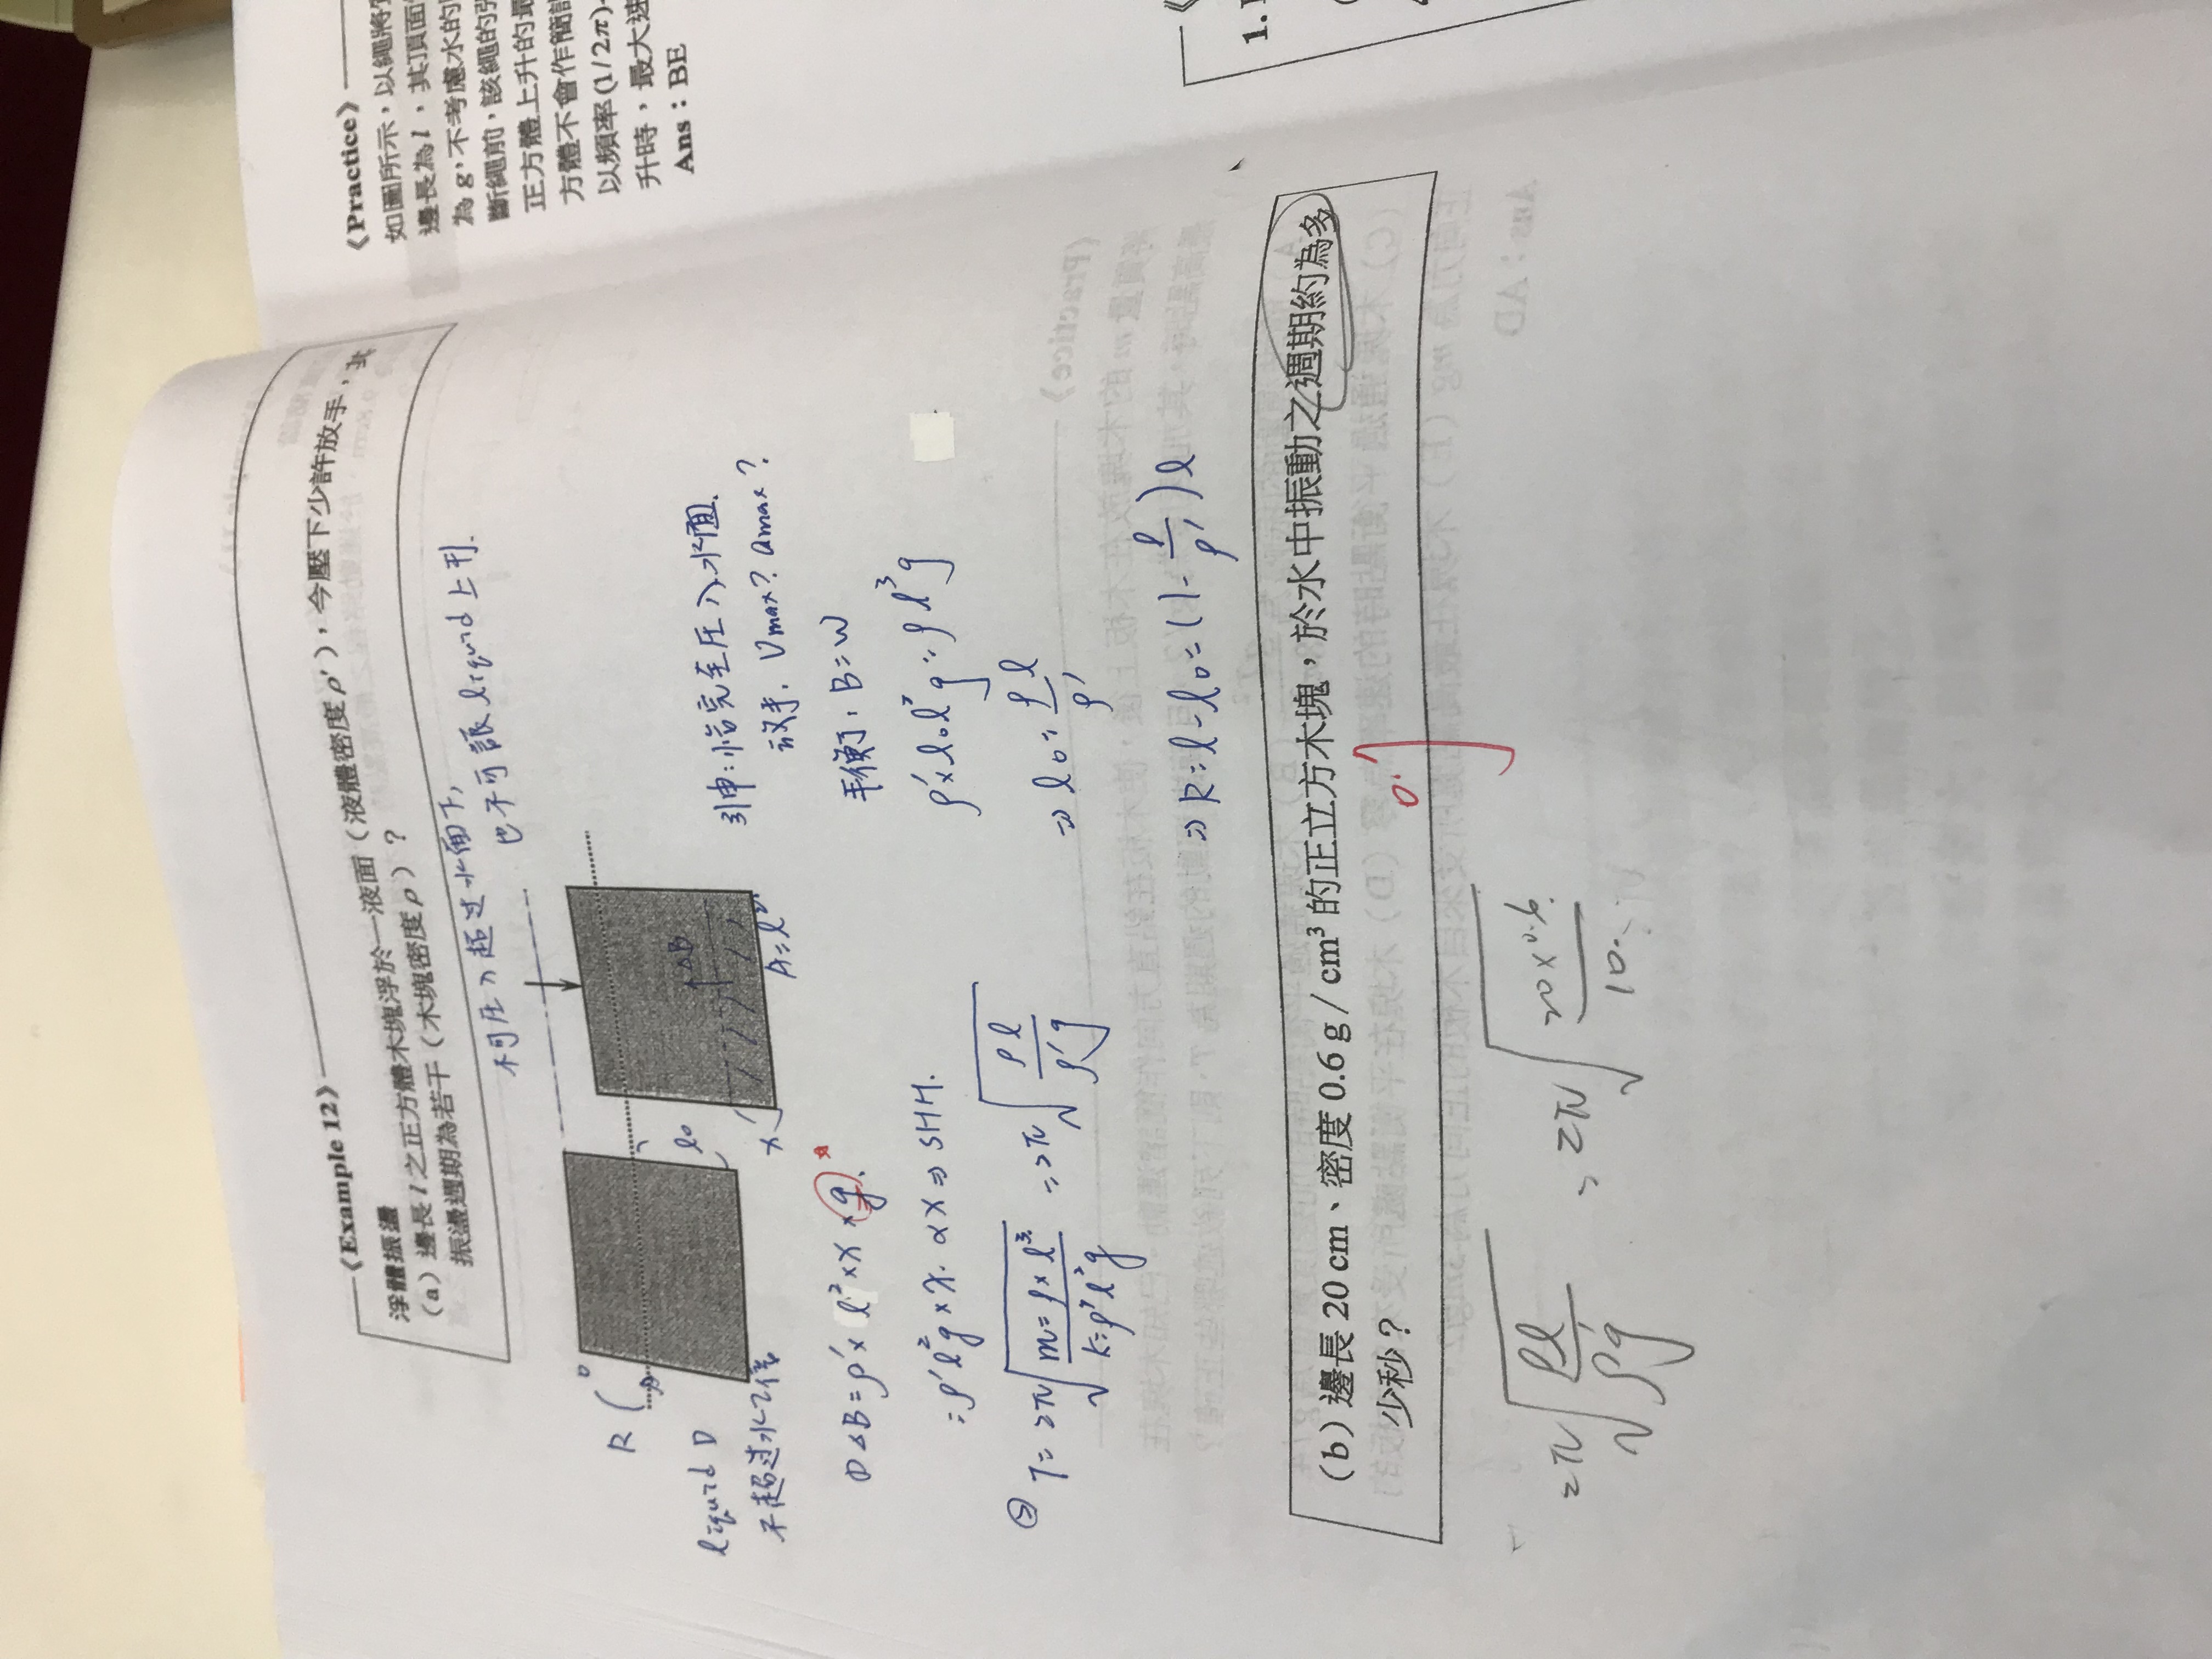 《Example 12》
浮體振盪
(a) 邊長 l 之正方體木塊浮於一液面(液體密度 ρ'),今壓下少許放手,此
振盪週期為若干(木塊密度 ρ)?
不可压入超过水面下,
也不可該 liquid 上升.
R
l0
x
ΔB
A=l²
liquid D
不超过水
引申:恰完全压入水面
放手, Vmax? amax?
① ΔB = ρ' × l² × x × g.
= ρ' l² g × x. αx ⇒ SHM.
② T = 2π √(m = ρ × l³ / k = ρ' l² g) = 2π √(ρl / ρ'g)
平衡: B=W
ρ' × l0 l² g = ρ l³ g
⇒ l0 = ρl / ρ'
⇒ R = l - l0 = (1 - ρ/ρ') l
(b) 邊長 20 cm、密度 0.6 g / cm³ 的正立方木塊,於水中振動之週期約為多
少秒?
0.7
= 2π √(ρl / ρ'g) = 2π √(20×0.6 / 10.)
《Practice》
如圖所示,以繩將
邊長為 l,其頂面
為 g,不考慮水的
斷繩前,該繩的張
正方體上升的最
方體不會作簡諧
以頻率(1/2π)
升時,最大速
Ans:BE
1.